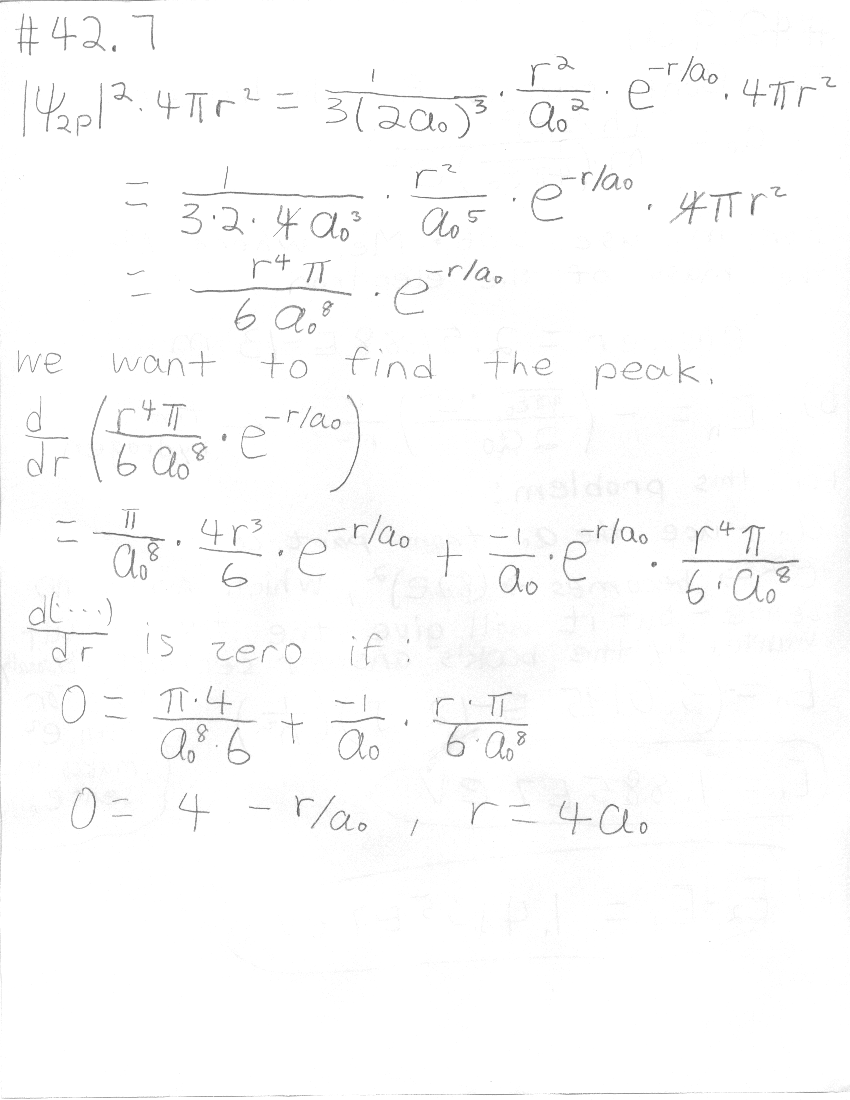 #42.7
|ψ₂ₚ|² · 4πr² = 1/(3(2a₀)³) · r²/a₀² · e^(-r/a₀) · 4πr²
= 1/(3·2·4 a₀³) · r²/a₀⁵ · e^(-r/a₀) · 4πr²
= r⁴π/(6 a₀⁸) · e^(-r/a₀)
we want to find the peak.
d/dr (r⁴π/(6 a₀⁸) · e^(-r/a₀))
= π/a₀⁸ · 4r³/6 · e^(-r/a₀) + -1/a₀ · e^(-r/a₀) · r⁴π/(6·a₀⁸)
d(···)/dr is zero if:
0 = π·4/(a₀⁸·6) + -1/a₀ · r·π/(6·a₀⁸)
0 = 4 - r/a₀ , r = 4a₀